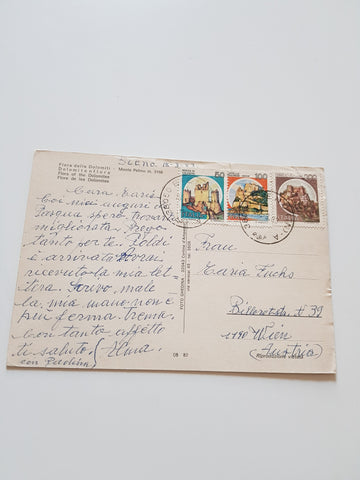 Flora delle Dolomiti
Dolomitenflora
Flora of the Dolomites
Flore de les Dolomites
Monte Pelmo m. 3168
Cara Maria
coi miei auguri di
Pasqua spero trovarti
migliorata. Prego
tanto per te. Poldi
è arrivata. Avrai
ricevuto la mia let
tera. Scrivo male
la mia mano non è
più ferma trema.
con tanto affetto
ti saluto Alma
con
50
100
200
ITALIA
Frau
Maria Fuchs
Billrothstr. # 39
1190 Wien
(Austria)
Riproduzione vietata
08 82